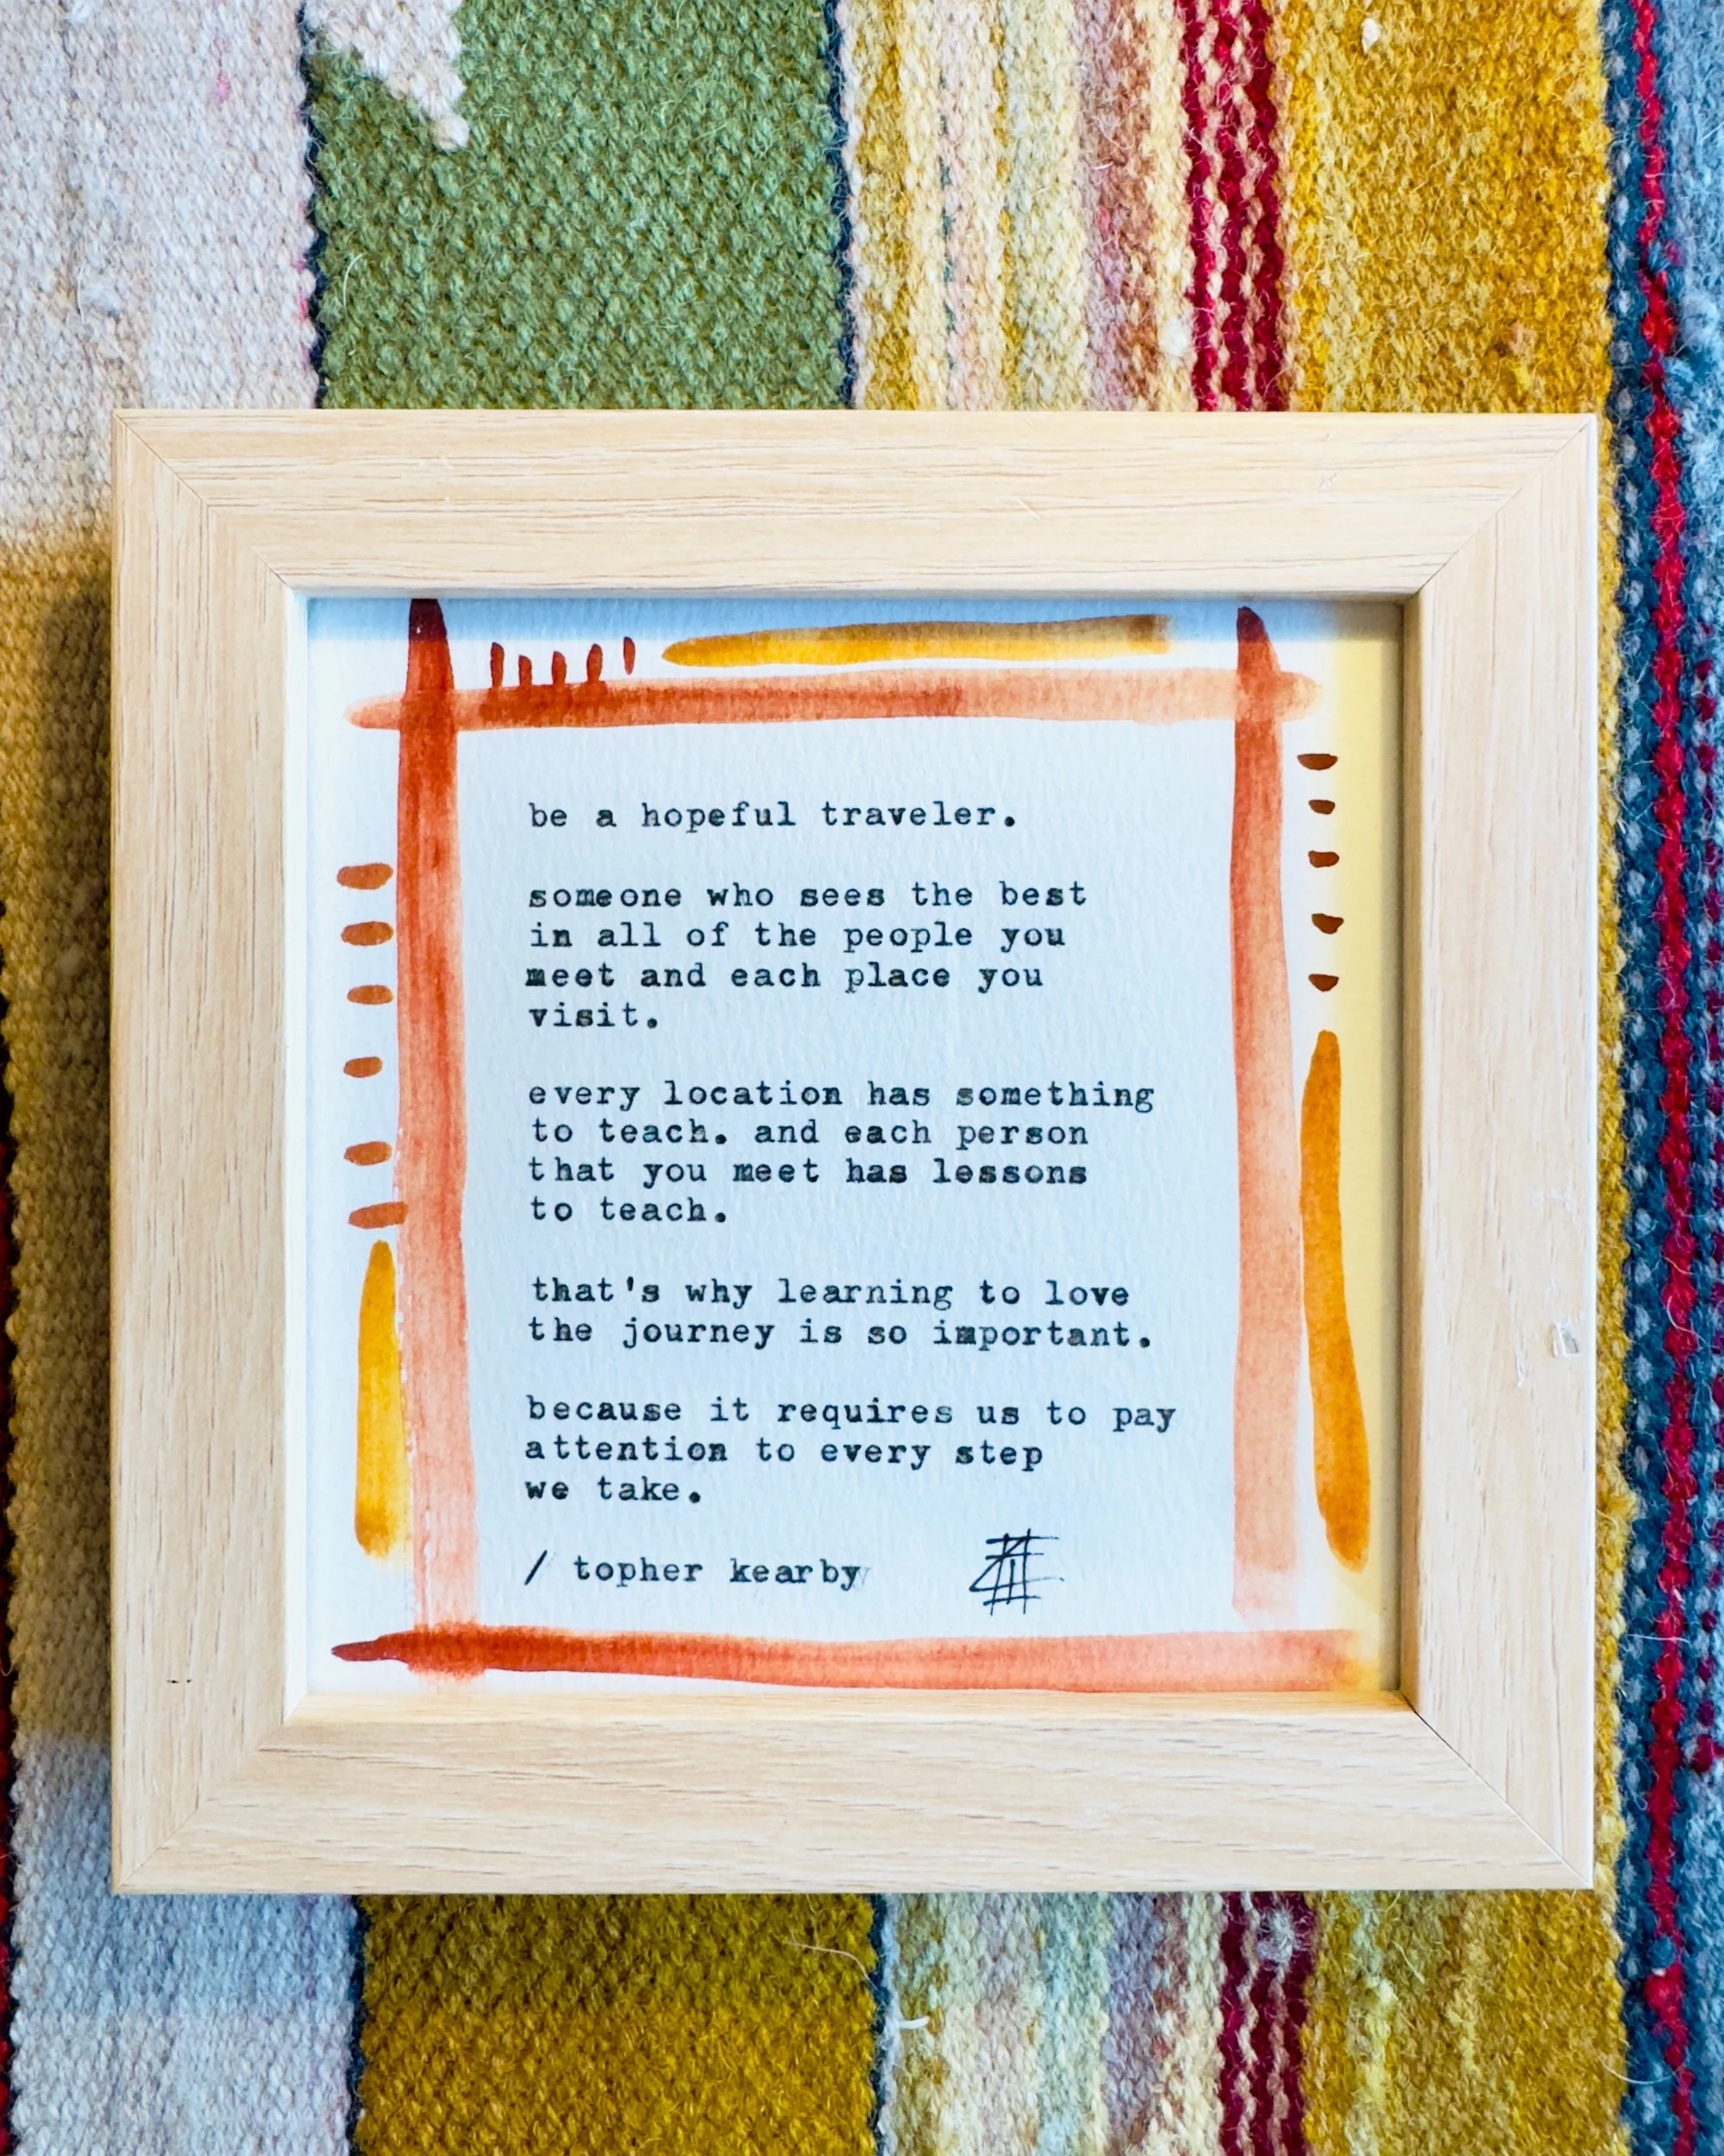 be a hopeful traveler.
someone who sees the best
in all of the people you
meet and each place you
visit.
every location has something
to teach. and each person
that you meet has lessons
to teach.
that's why learning to love
the journey is so important.
because it requires us to pay
attention to every step
we take.
/ topher kearby